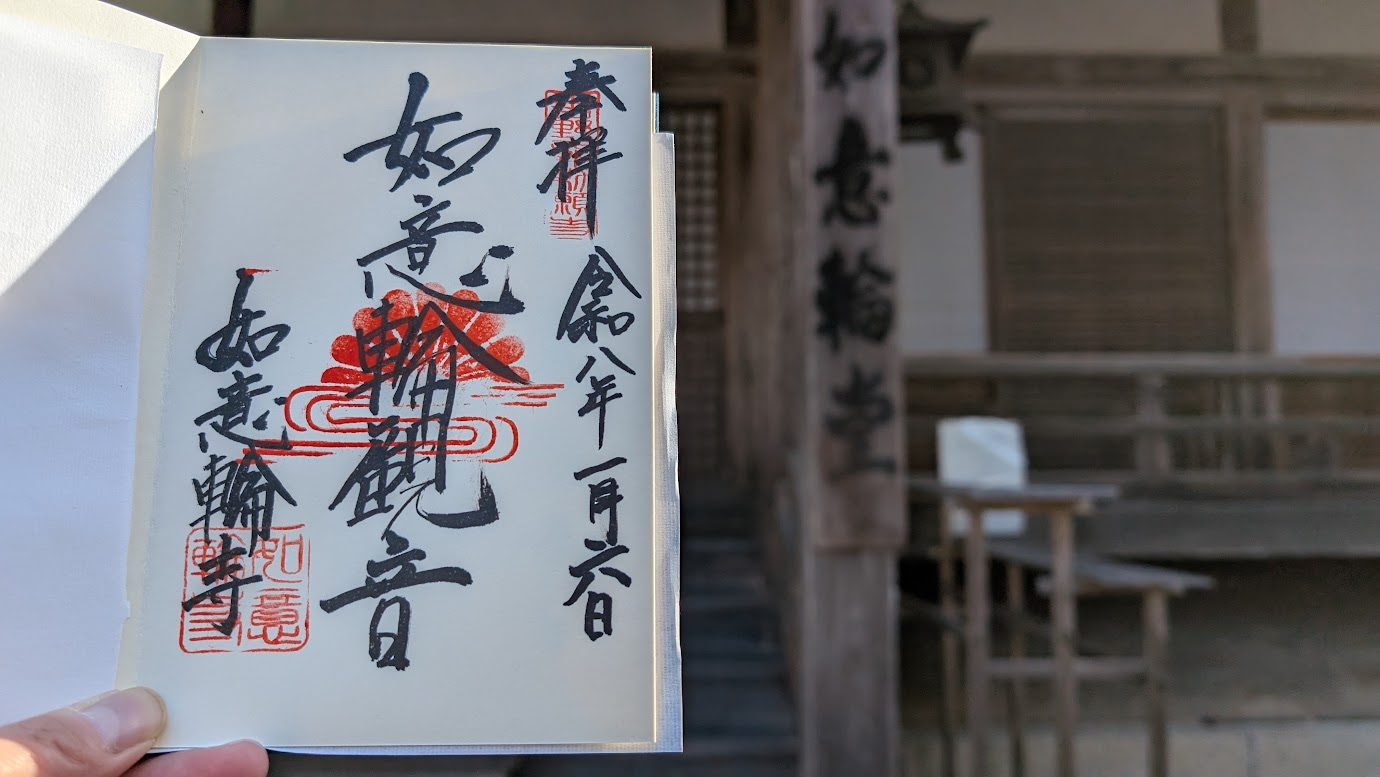 奉拝
令和八年一月六日
如意輪観音
如意輪寺
如意輪寺
如意輪堂